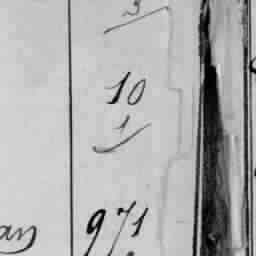 3
10
1
971